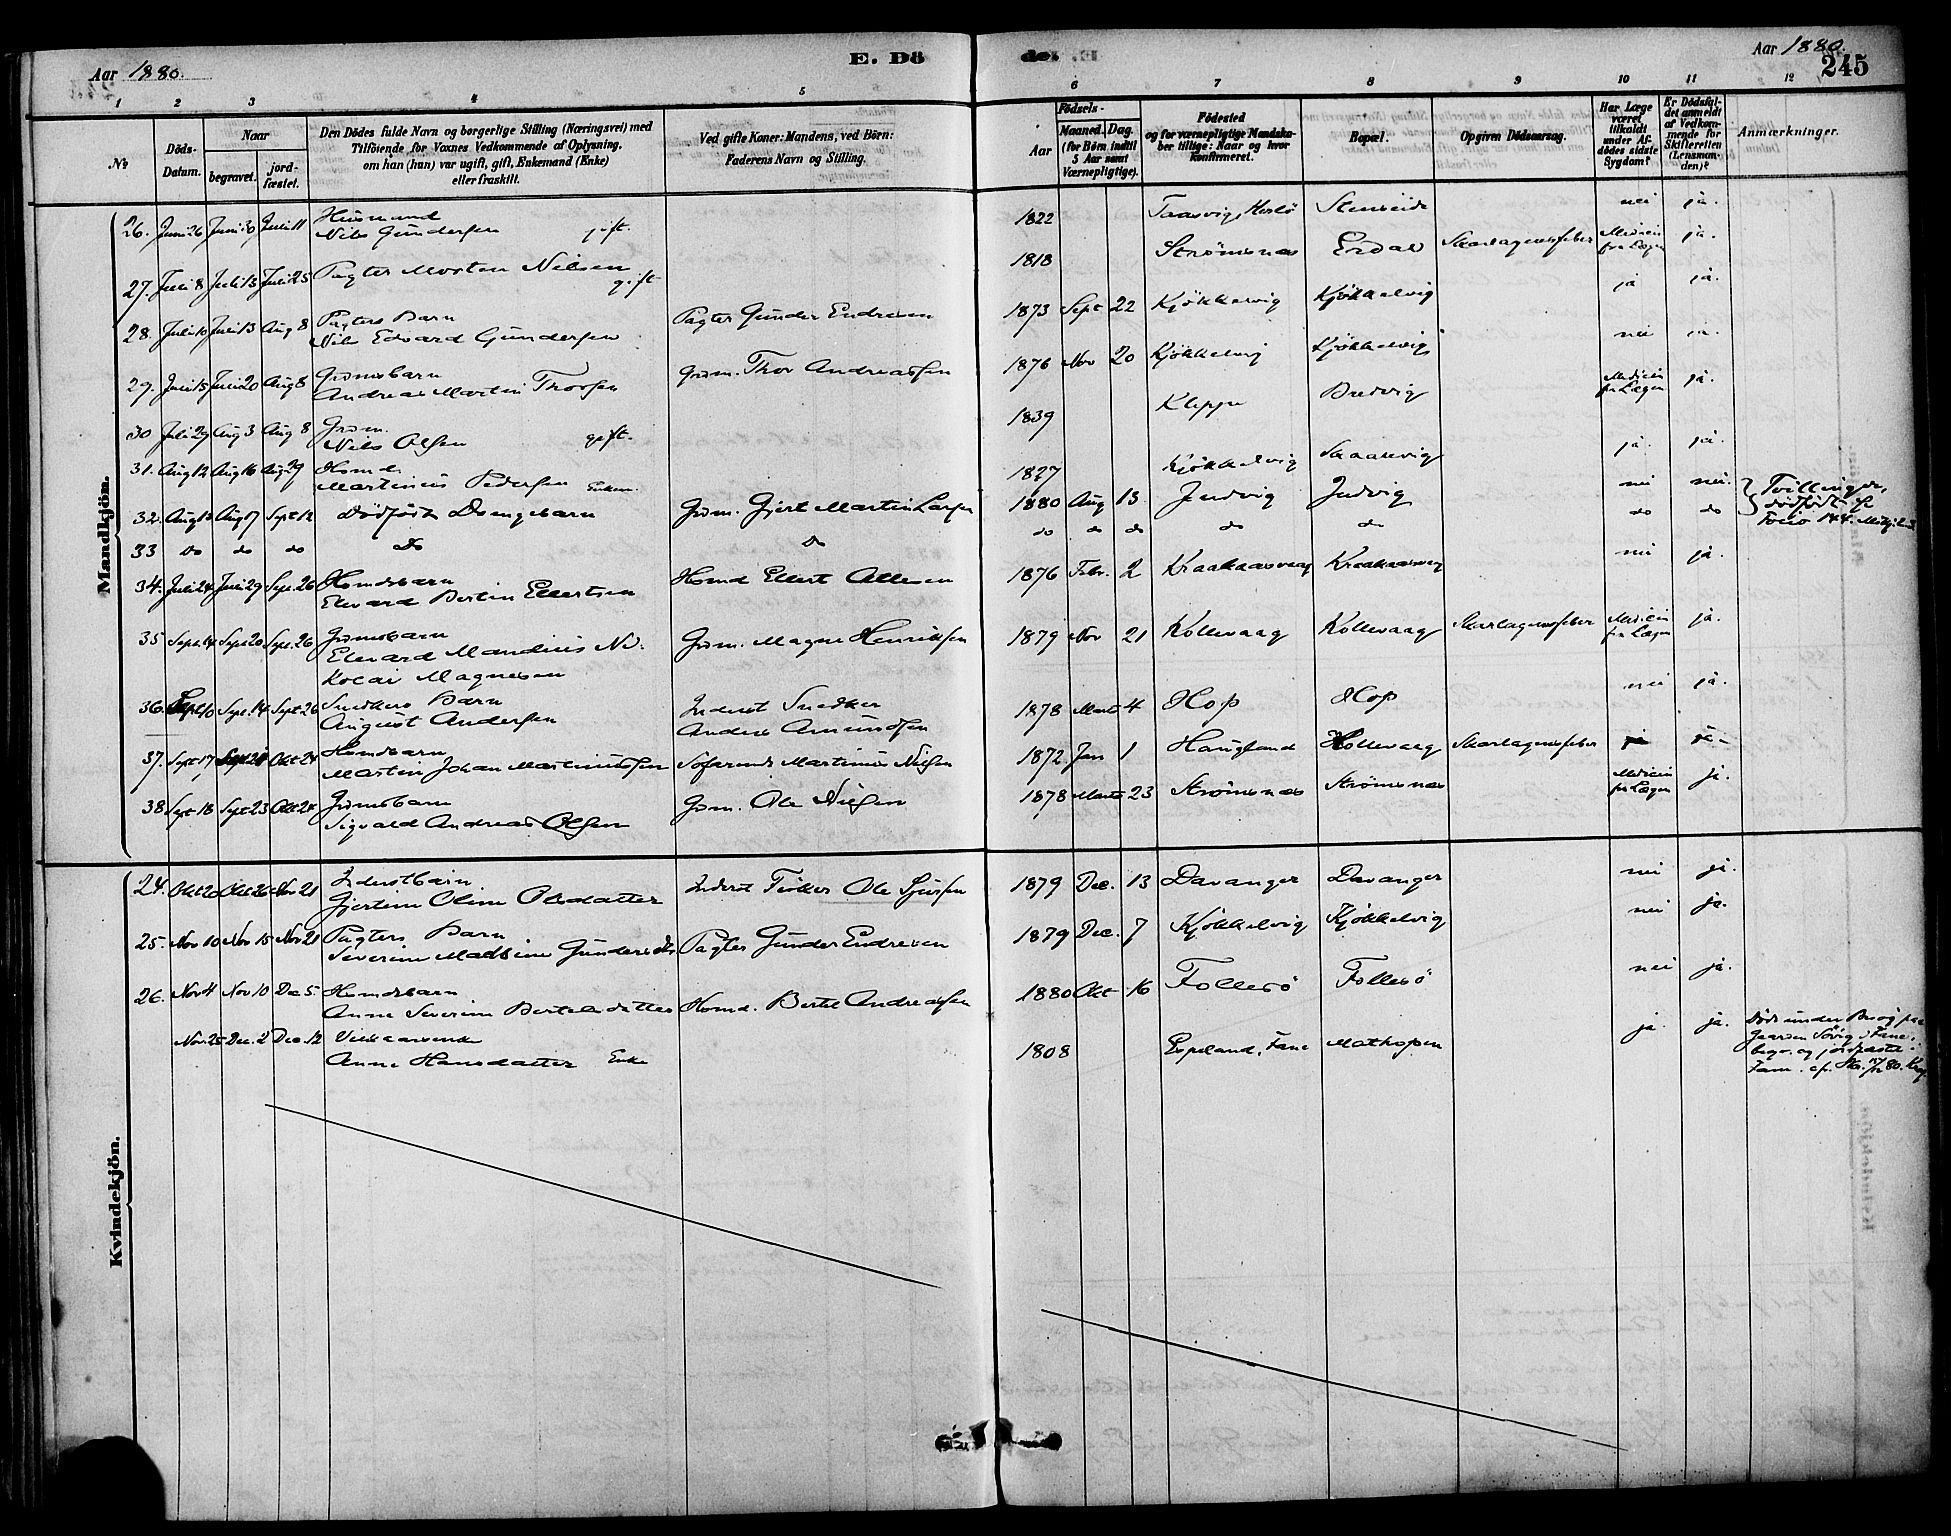 Aar 1880.
E. Dö
de.
Aar 1880.
245
1 2 3 4 5 6 7 8 9 10 11 12
No
Döds-Datum.
Naar
begravet.
jord-fæstet.
Den Dödes fulde Navn og borgerlige Stilling (Næringsvei) med
Tilföiende for Voxnes Vedkommende af Oplysning,
om han (hun) var ugift, gift, Enkemand (Enke)
eller fraskilt.
Ved gifte Koner: Mandens, ved Börn:
Faderens Navn og Stilling.
Födsels-
Aar
Maaned. Dag.
(for Börn indtil
5 Aar samt
Værnepligtige).
Födested
og for værnepligtige Mandska-
ber tillige: Naar og hvor
Konfirmeret.
Bopæl.
Opgiven Dödsaarsag.
Har Læge
været
tilkaldt
under Af-
dödes sidste
Sygdom?
Er Dödsfal-
det anmeldt
af Vedkom-
mende for
Skifteretten
(Lensman-
den)?
Anmærkninger.
Mandkjön.
26. Juni 26 Juni 30 Juli 11 Husmand
Nils Gundersen gift. 1822 Taasvig, Herlö nei ja.
27. Juli 8 Juli 13 Juli 25 Pagter Morten Nilsen
gift 1818 Strömsnes Erdal Skarlagensfeber Medicin
fra Lægen ja.
28. Juli 10 Juli 13 Aug 8 Pagters Barn
Nils Edvard Gundersen Pagter Gunder Endresen 1873 Sept 22 Kjøkkelvig Kjøkkelvig ja ja.
29. Juli 15 Juli 20 Aug 8 Grmsbarn
Andreas Martin Thorsen Grm. Thor Andreassen 1876 Nov 20 Kjøkkelvig Kjøkkelvig nei ja.
30 Juli 29 Aug 3 Aug 8 Grm.
Nils Olsen gift. 1839 Kleppe Bredvig Medicin
fra Lægen ja.
31. Aug 12 Aug 16 Aug 29 Hsmd.
Martinus Pedersen Enkem. 1827 Kjøkkelvig Skaalevig ja. ja.
32. Aug 13 Aug 17 Sept 12 Dödfödt Drengebarn Grm. Gjert Martin Larsen 1880 Aug 13. Indvig Indvig nei nei. Tvillinger,
dødfødt
33 do do do Do Do do do do do do do do
34. Juli 24 Juli 29 Sept. 26 Hsmdsbarn
Edvard Bertin Ellertsen Hsmd Ellert Ollesen 1876 Febr. 2 Kraakaasvaag Kraakaasvaag nei ja.
35 Sept. 14 Sept 20 Sept. 26 Grmsbarn
Edvard Mandius Ni-
kolai Magnesen Grm. Magne Henriksen 1879 Nov 21 Kollevaag Kollevaag Skarlagensfeber Medicin
fra Lægen ja.
36. Sept 10 Sept. 14 Sept 26 Snedkers Barn
August Andersen Inderst Snedker
Anders Amundsen 1878 Marts 4 Hop Hop nei ja.
37. Sept 17 Sept 21 Okt 24 Hsmdsbarn
Martin Johan Martinussen Martinus Nilsen 1872. Jan 1 Haugland Kollevaag Skarlagensfeber ja ja.
38 Sept 18 Sept 23 Okt 24 Grmsbarn
Sigvald Andreas Olsen Grm. Ole Nilsen 1878 Marts 23 Strømsnes Strømsnes Medicin
fra Lægen ja.
Kvindekjön.
24. Okt 20 Okt 26 Nov 21 Inderstbarn
Gjertine Oline Olsdatter Inderst Ole Sjursen 1879 Dec. 13 Davanger Davanger nei ja.
25. Nov 10 Nov 15 Nov 21 Pagters Barn
Severine Madsine Gundersdtr Pagter Gunder Endresen 1879 Dec. 7 Kjøkkelvig Kjøkkelvig nei ja.
26. Nov 4 Nov 10 Dec 5. Hsmdsbarn
Anne Severine Bertelsdatter Hsmd. Bertel Andreassen 1880 Okt 16 Follesö Follesö nei ja.
Nov. 25 Dec. 2 Dec. 12
Anne Hansdatter Enke 1808 Espeland, Fane Mathopen ja. ja. Døde under Besøg paa
Gaarden Sövig i Fane,
begr. og jordfæstet i
Fane.